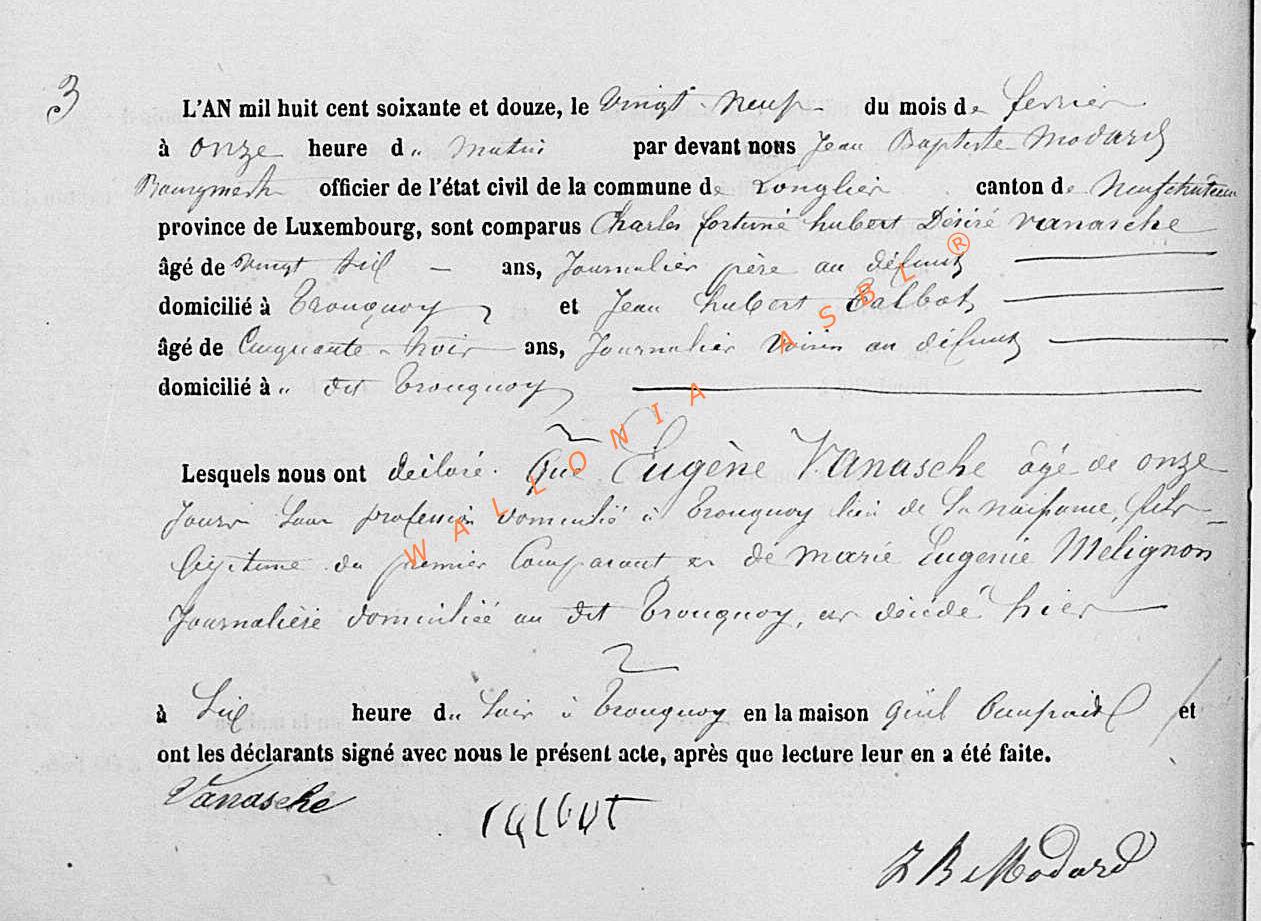 3
L'AN mil huit cent soixante et douze, le vingt-neuf du mois de fevrier
à onze heure du matin par devant nous Jean Baptiste Modard
Bourgmestre officier de l'état civil de la commune de Longlier canton de Neufchateau
province de Luxembourg, sont comparus Charles fortuné hubert Désiré Vanasche
âgé de vingt six ans, Journalier père au défunt
domicilié à Tronquoy et Jean hubert Talbot
âgé de Cinquante-trois ans, Journalier voisin au défunt
domicilié à u dit Tronquoy
Lesquels nous ont déclaré que Eugène Vanasche âgé de onze
Jours Sans profession domicilié à Tronquoy lieu de Sa naissance, fils
légitime du premier Comparant et de Marie Eugenie Mélignon
Journalière domiciliée au dit Tronquoy, est décédé hier
à Six heure du Soir à Tronquoy en la maison qu'il occupait et
ont les déclarants signé avec nous le présent acte, après que lecture leur en a été faite.
Vanasche
talbot
J B Modard
WALLONIA ASBL ®